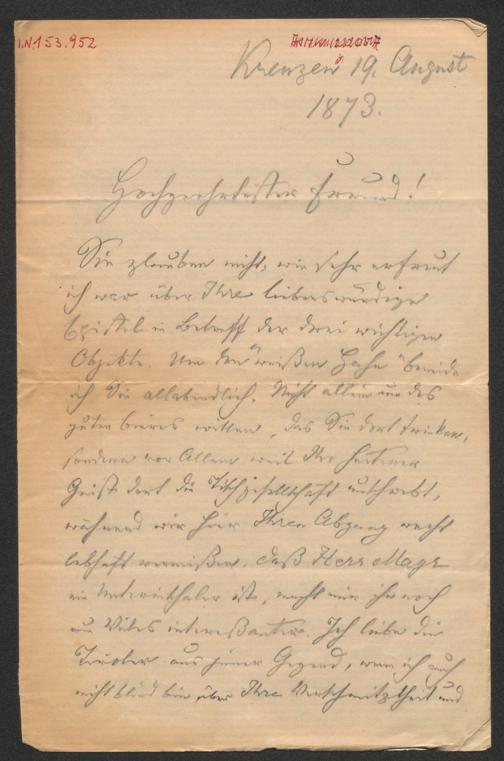 I.N 153.952
Kreuzen 19. August
1873.
Hochgeehrtester Freund!
Sie glauben nicht, wie sehr erfreut
ich war über Ihre liebenswürdige
Epistel in Betreff der drei wichtigen
Objekte. Um den "weißen Hahn" beneide
ich Sie allabendlich. Nicht allein um des
guten Bieres willen, das Sie dort trinken,
sondern vor Allem weil Ihr heiterer
Geist dort die Tischgesellschaft umschwebt,
während wir hier Ihren Abgang recht
lebhaft vermißen. Daß Herr Mayr
ein Unterinthaler ist, macht mir ihn noch
um Vieles interessanter. Ich liebe die
Tiroler aus jener Gegend, wenn ich auch
nicht blind bin über Ihre Verschmitztheit und